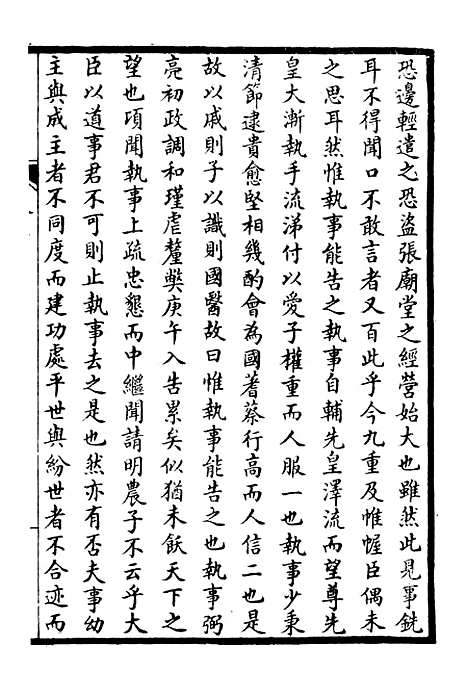 恐邊輕遣之恐盜張廟堂之經營始大也雖然此見事銑
耳不得聞口不敢言者又百此乎今九重及帷幄臣偶未
之思耳然惟執事能告之執事自輔先皇澤流而望尊先
皇大漸執手流涕付以愛子權重而人服一也執事少秉
清節逮貴愈堅相幾酌會為國蓍蔡行高而人信二也是
故以戚則子以識則國醫故曰惟執事能告之也執事弼
亮初政調和瑾虐釐獘庚午入告累矣似猶未飫天下之
望也項聞執事上疏忠懇而中繼聞請明農子不云乎大
臣以道事君不可則止執事去之是也然亦有否夫事幼
主與成主者不同度而建功處平世與紛世者不合迹而